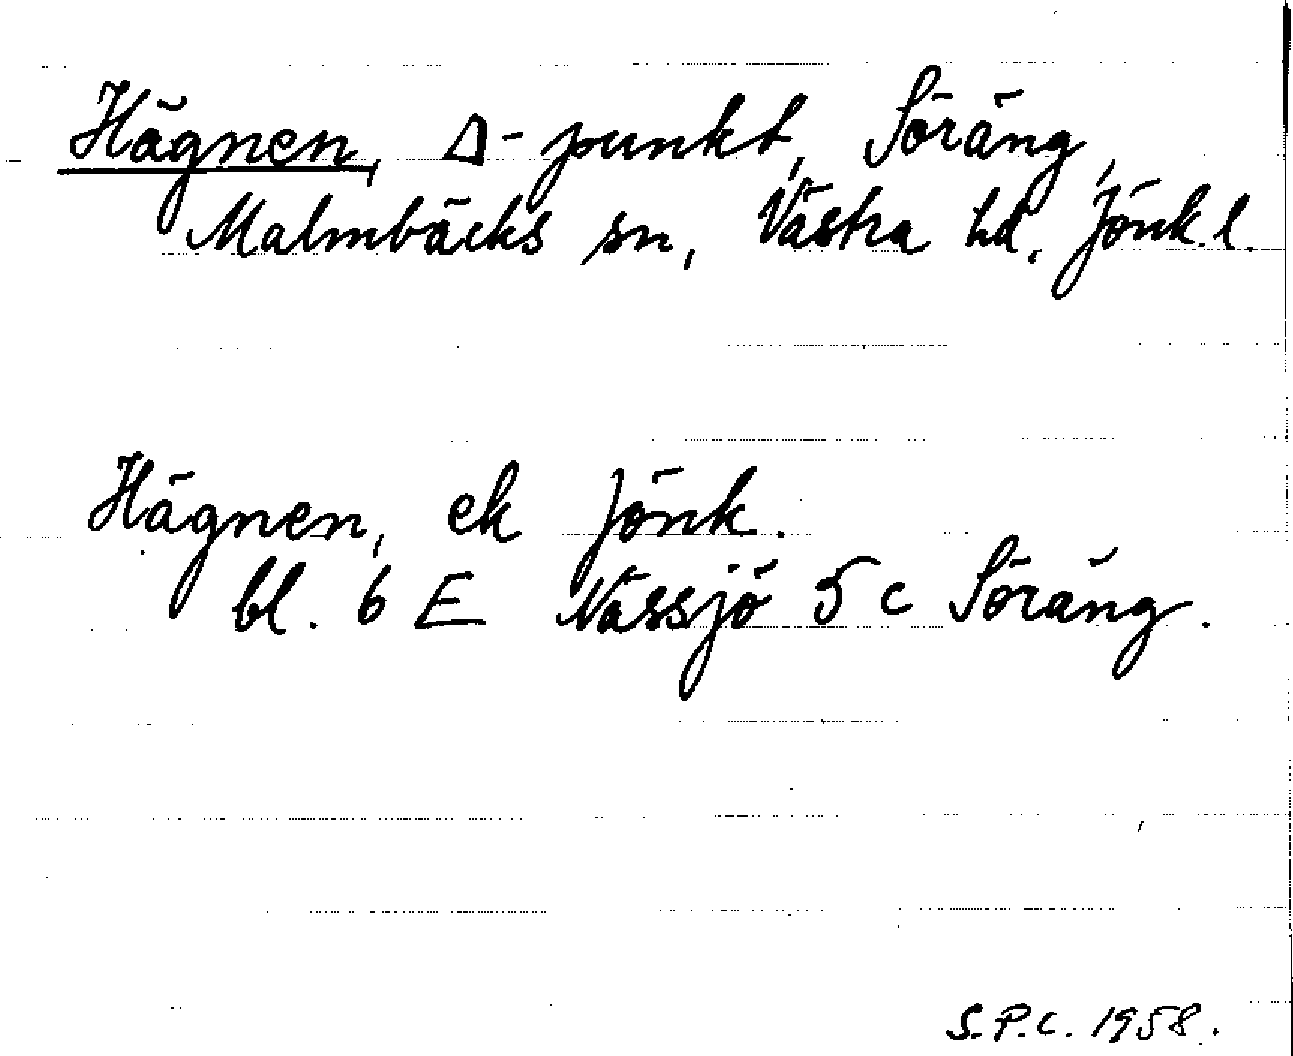 Hägnen, Δ-punkt, Söräng,
Malmbäcks sn, Västra hd. Jönk. l.
Hägnen, ek Jönk.
bl. 6 E Nässjö 5 c Söräng.
S.P.C. 1958.